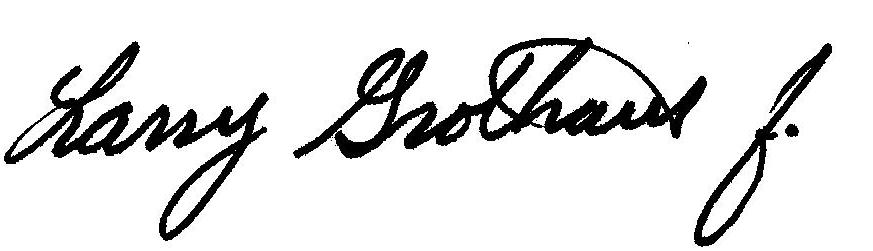 Larry Grothaus J.